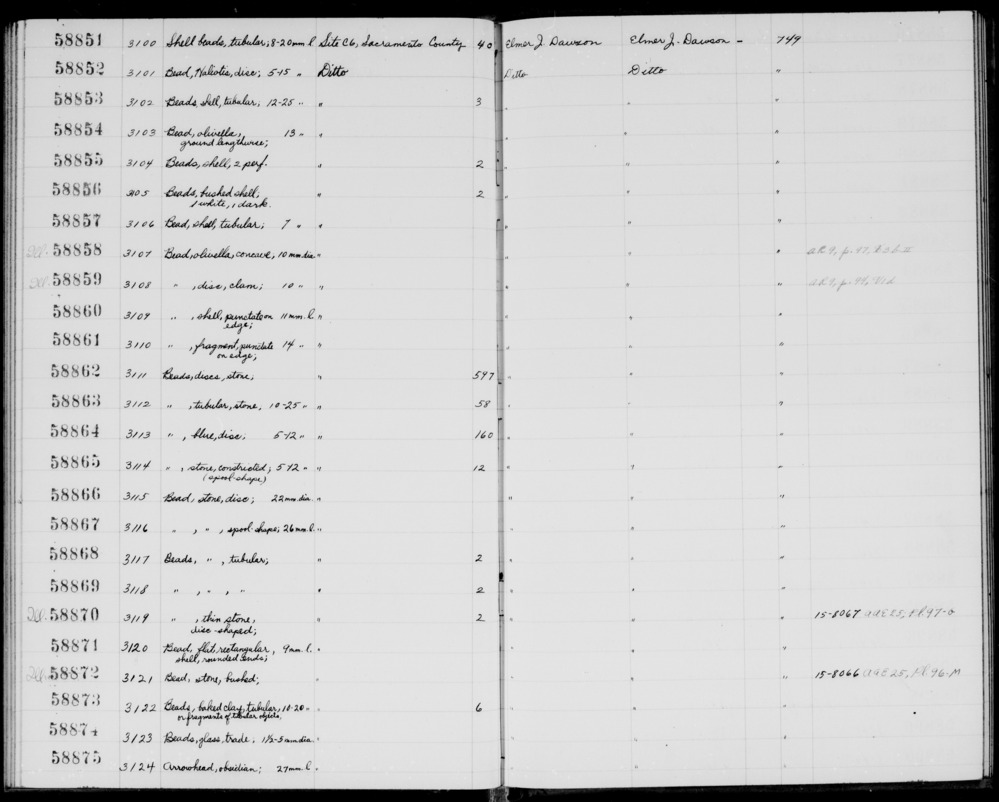 58851 3100 Shell beads, tubular; 8-20mm l Site C6, Sacramento County 40 Elmer J. Dawson Elmer J. Dawson - 749
58852 3101 Bead, Haliotis, disc; 5-15 " Ditto Ditto Ditto "
58853 3102 Beads, shell, tubular; 12-25 " " 3 " " "
58854 3103 Bead, olivella, 13 " " " " "
ground lengthwise;
58855 3104 Beads, shell, 2 perf. " 2 " " "
58856 3105 Beads, bushed shell; " 2 " " "
1 white, 1 dark.
58857 3106 Bead, shell, tubular; 7 " " " " "
Ill. 58858 3107 Bead, olivella, concave, 10 mm dia " " " "
Ill. 58859 3108 " , disc, clam; 10 " " " " "
58860 3109 " , shell, punctate on 11 mm. l. " " " "
edge;
58861 3110 " , fragment, punctate 14 " " " " "
on edge;
58862 3111 Beads, discs, stone; " 597 " " "
58863 3112 " , tubular, stone, 10-25 " " 58 " " "
58864 3113 " , blue, disc; 5-12 " " 160 " " "
58865 3114 " , stone, constricted; 5-12 " " 12 " " "
(spool-shape)
58866 3115 Bead, stone, disc; 22 mm dia. " " " "
58867 3116 " , " , spool-shape; 26 mm. l. " " " "
58868 3117 Beads, " , tubular; " 2 " " "
58869 3118 " , " , " " 2 " " "
Ill. 58870 3119 " , thin stone, " 2 " " " 15-8067 AAE25, Pl. 97-G
disc-shaped;
58871 3120 Bead, flat, rectangular, 9 mm. l. " " " "
shell, rounded ends;
Ill. 58872 3121 Bead, stone, bushed; " " " " 15-8066 AAE25, Pl. 96-M
58873 3122 Beads, baked clay, tubular, 10-20 " " 6 " " "
or fragments of tubular objects.
58874 3123 Beads, glass, trade; 1½-5 mm dia. " " " "
58875 3124 Arrowhead, obsidian; 27 mm. l. " " " "